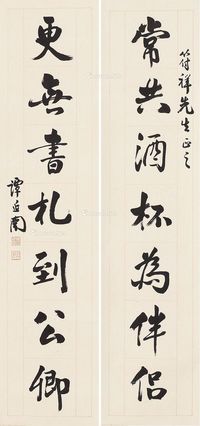 符祥先生正之
常共酒杯為伴侶
更無書札到公卿
譚延闓